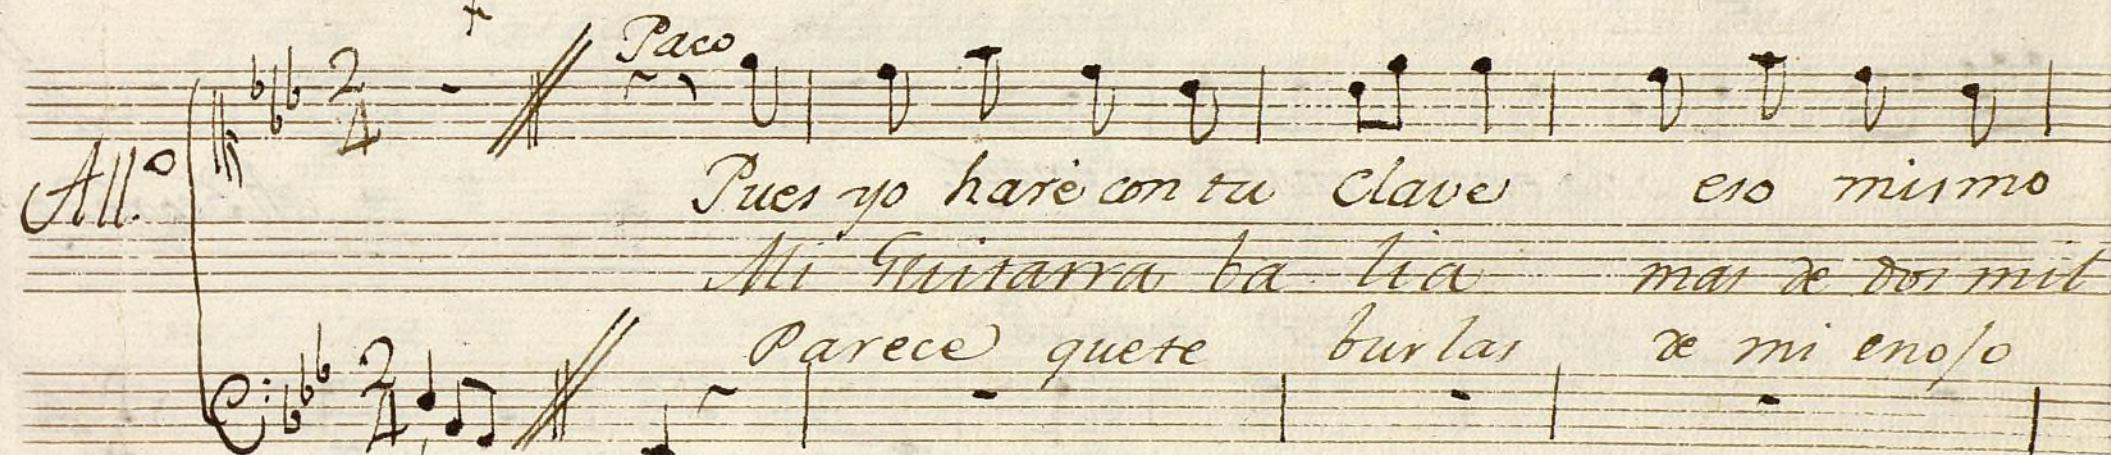 Paco
All.o
Pues yo haré con tu Clave eso mismo
Mi Guitarra balia mas de dos mil
Parece quete burlas de mi enojo